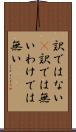 訳ではない
×訳では無
いわけでは
無い